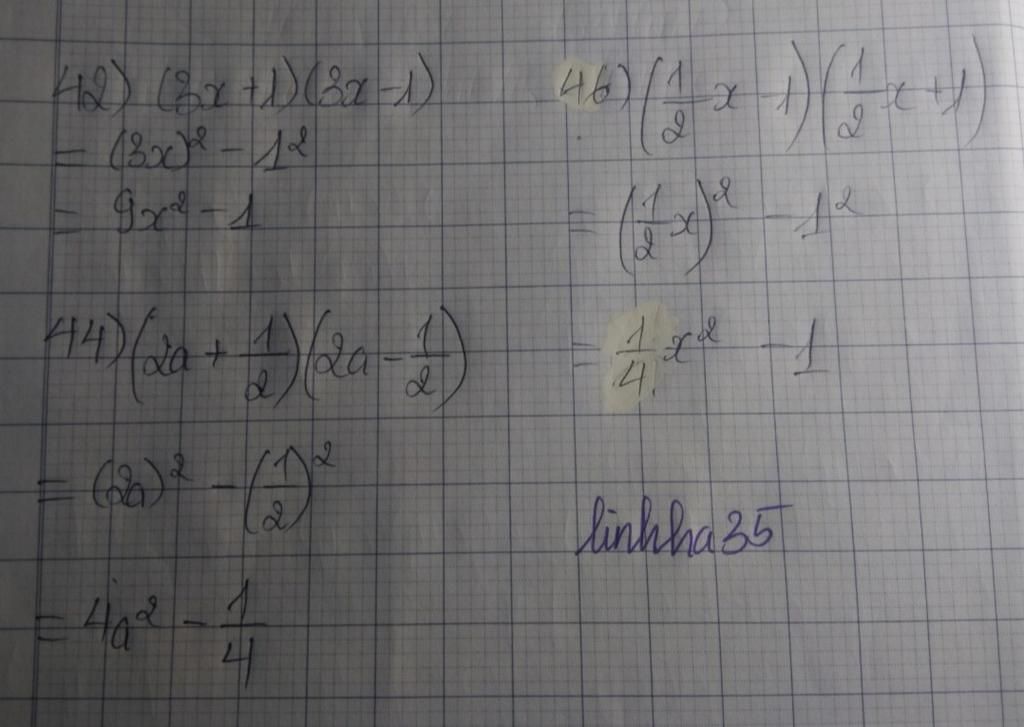 42) (3x+1)(3x-1)
= (3x)² - 1²
= 9x² - 1
44) (2a + 1/2)(2a - 1/2)
= (2a)² - (1/2)²
= 4a² - 1/4
46) (1/2 x - 1)(1/2 x + 1)
= (1/2 x)² - 1²
= 1/4 x² - 1
linhha35